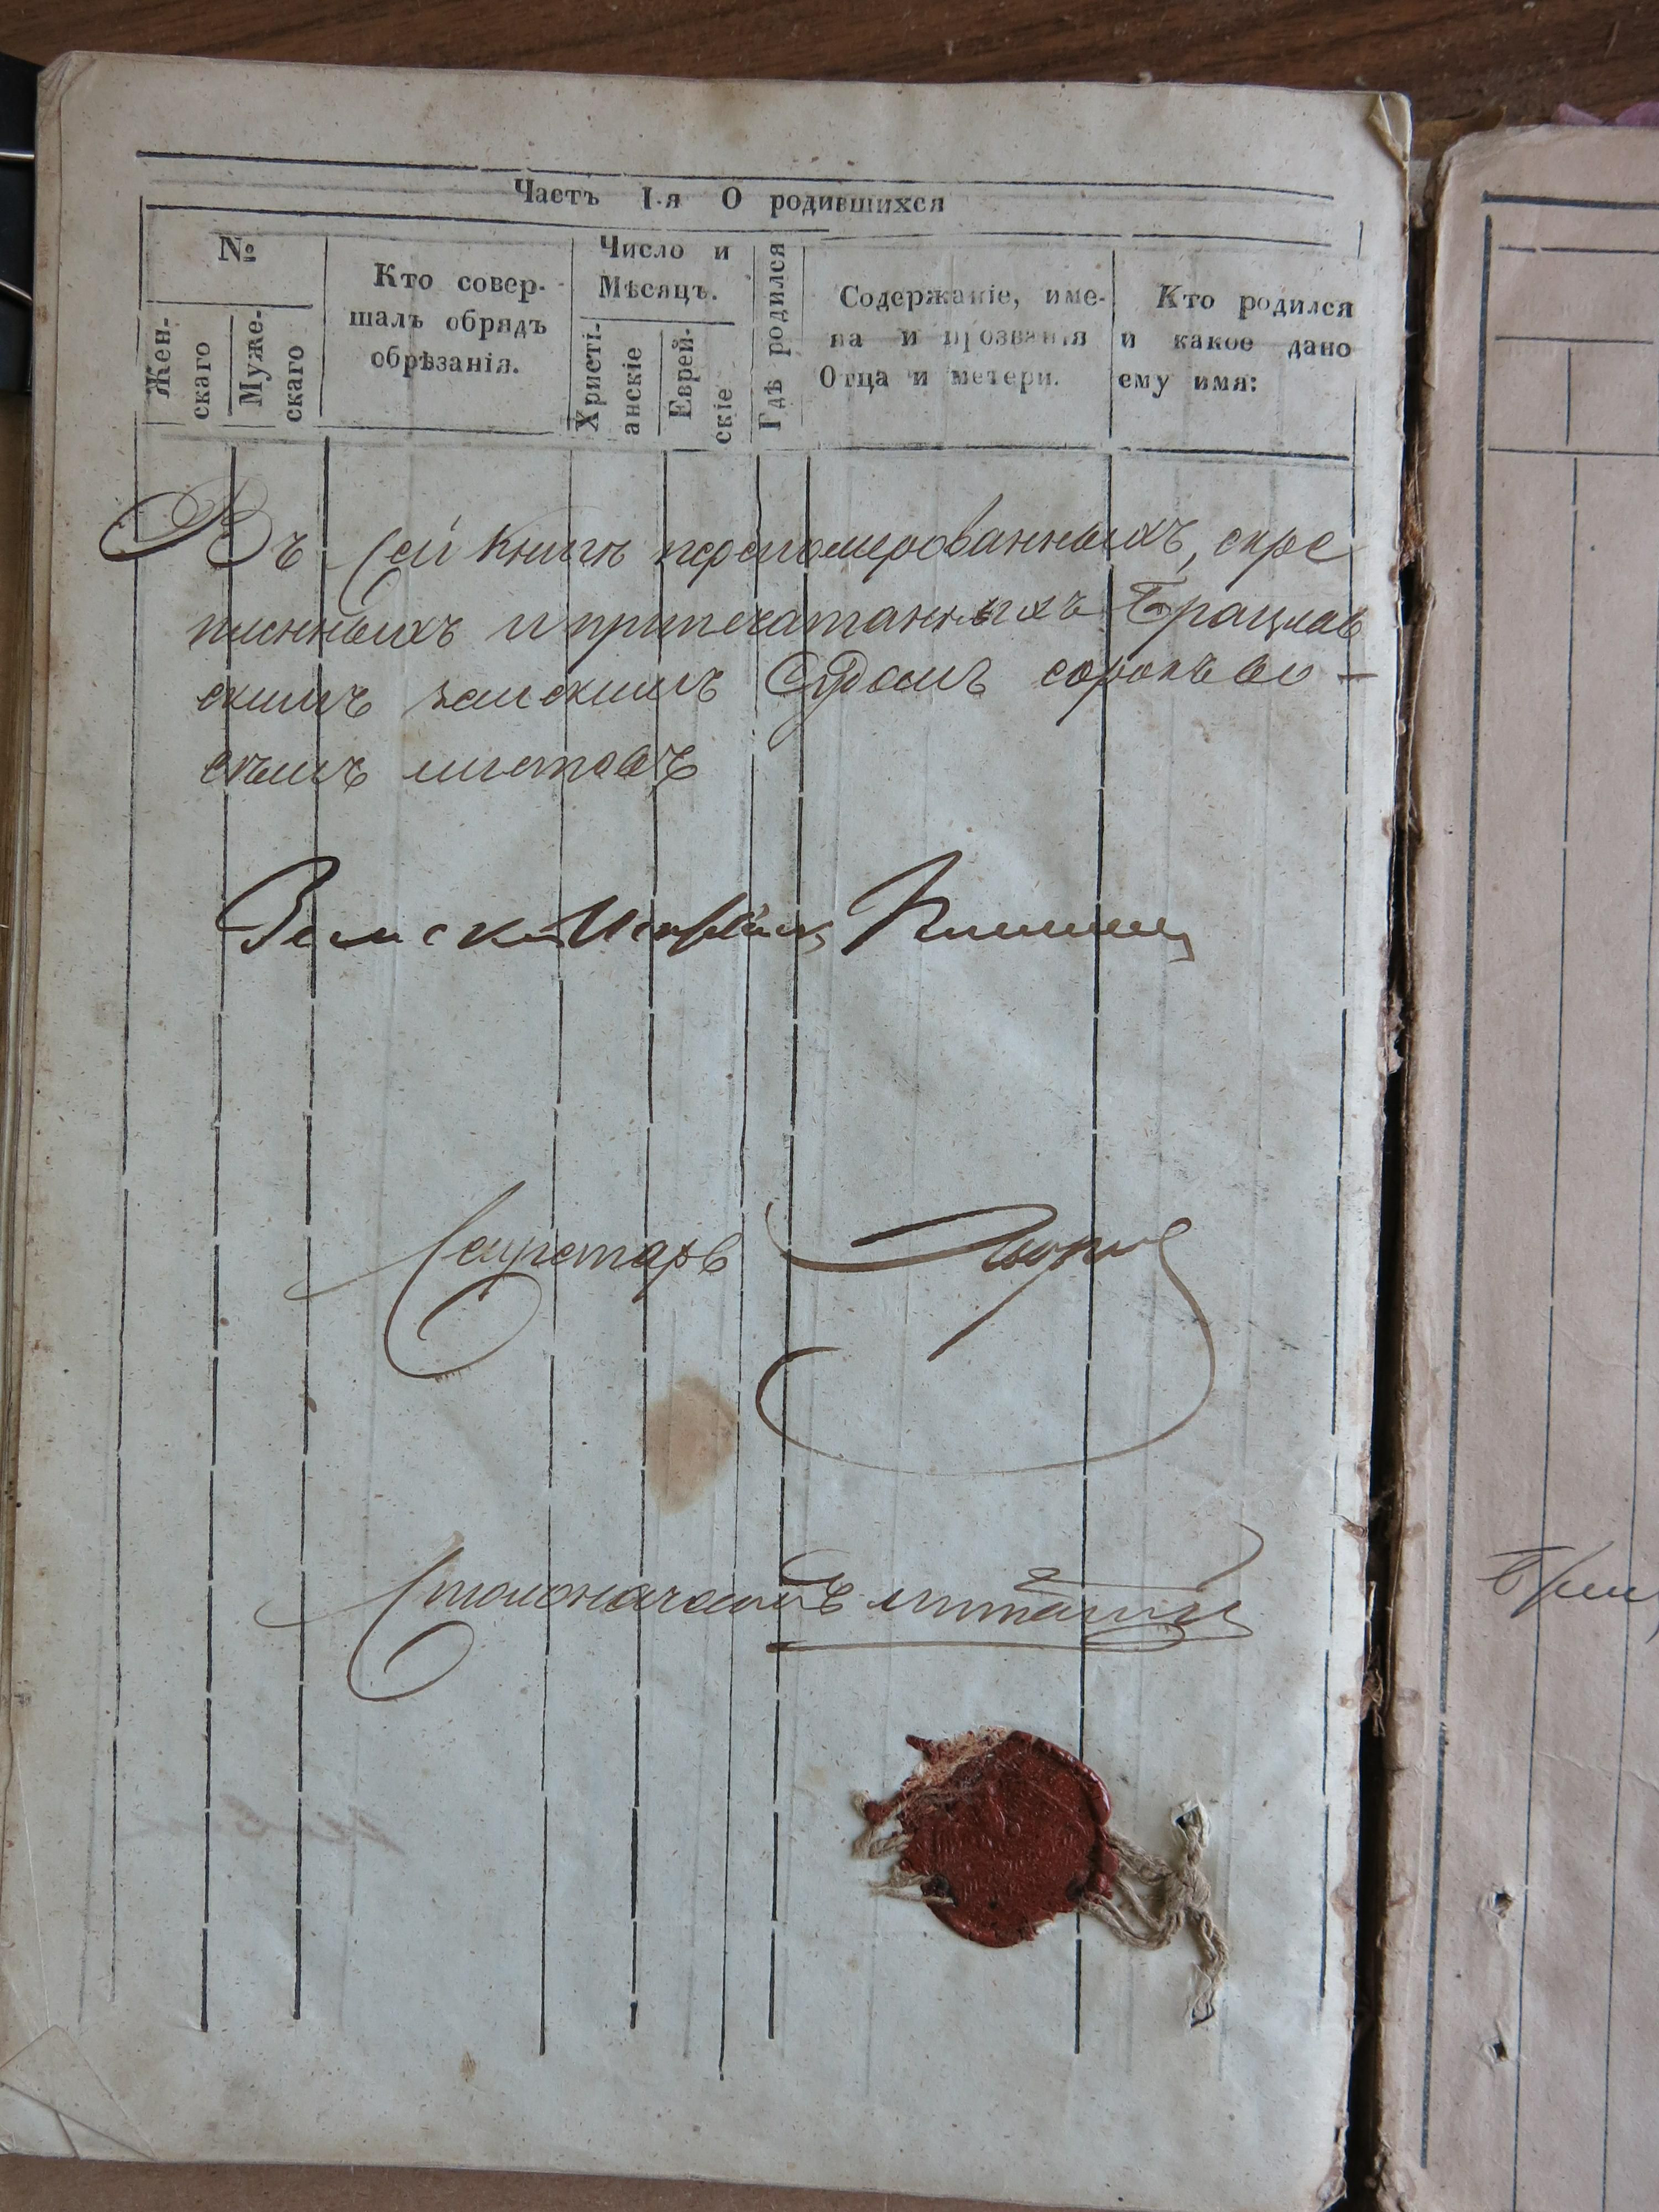 Часть I-я О родившихся
№
Жен-
скаго
Муже-
скаго
Кто совер-
шалъ обрядъ
обрѣзанія.
Число и
Мѣсяцъ.
Христі-
анскіе
Еврей-
скіе
Гдѣ родился
Содержаніе, име-
на и прозванія
Отца и метери.
Кто родился
и какое дано
ему имя:
Въ сей книгѣ перенумерованныхъ, скре
пленныхъ и припечатанныхъ Брацлав
скимъ земскимъ Судомъ сорокъ во-
сѣмъ листовъ
Земскій Исправникъ
Секретарь
Столоначальникъ